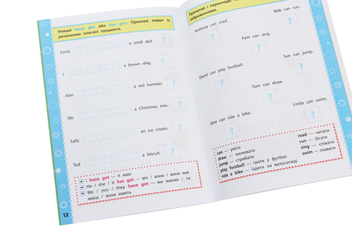 Впиши have got або has got.Приклей поруч із
реченнями власні предмети.
Emily a small doll.
I a brown dog.
Alan a red hamster.
We a Christmas tree.
Sally an ice cream.
Ted a biscuit.
I have got — я маю
He / she / it has got — він / вона / воно має
We / you / they have got — ми маємо / ти
маєш / вони мають
12
Прочитай і
зображеннями.
Antony can read.
Rob can run.
Pam can sing.
Sue can jump.
David can play football.
Tom can draw.
Linda can swim.
Jane can ride a bike.
can — уміти
draw — малювати
jump — стрибати
play football — грати у футбол
ride a bike — їздити на велосипеді
read — читати
run — бігати
sing — співати
swim — плавати